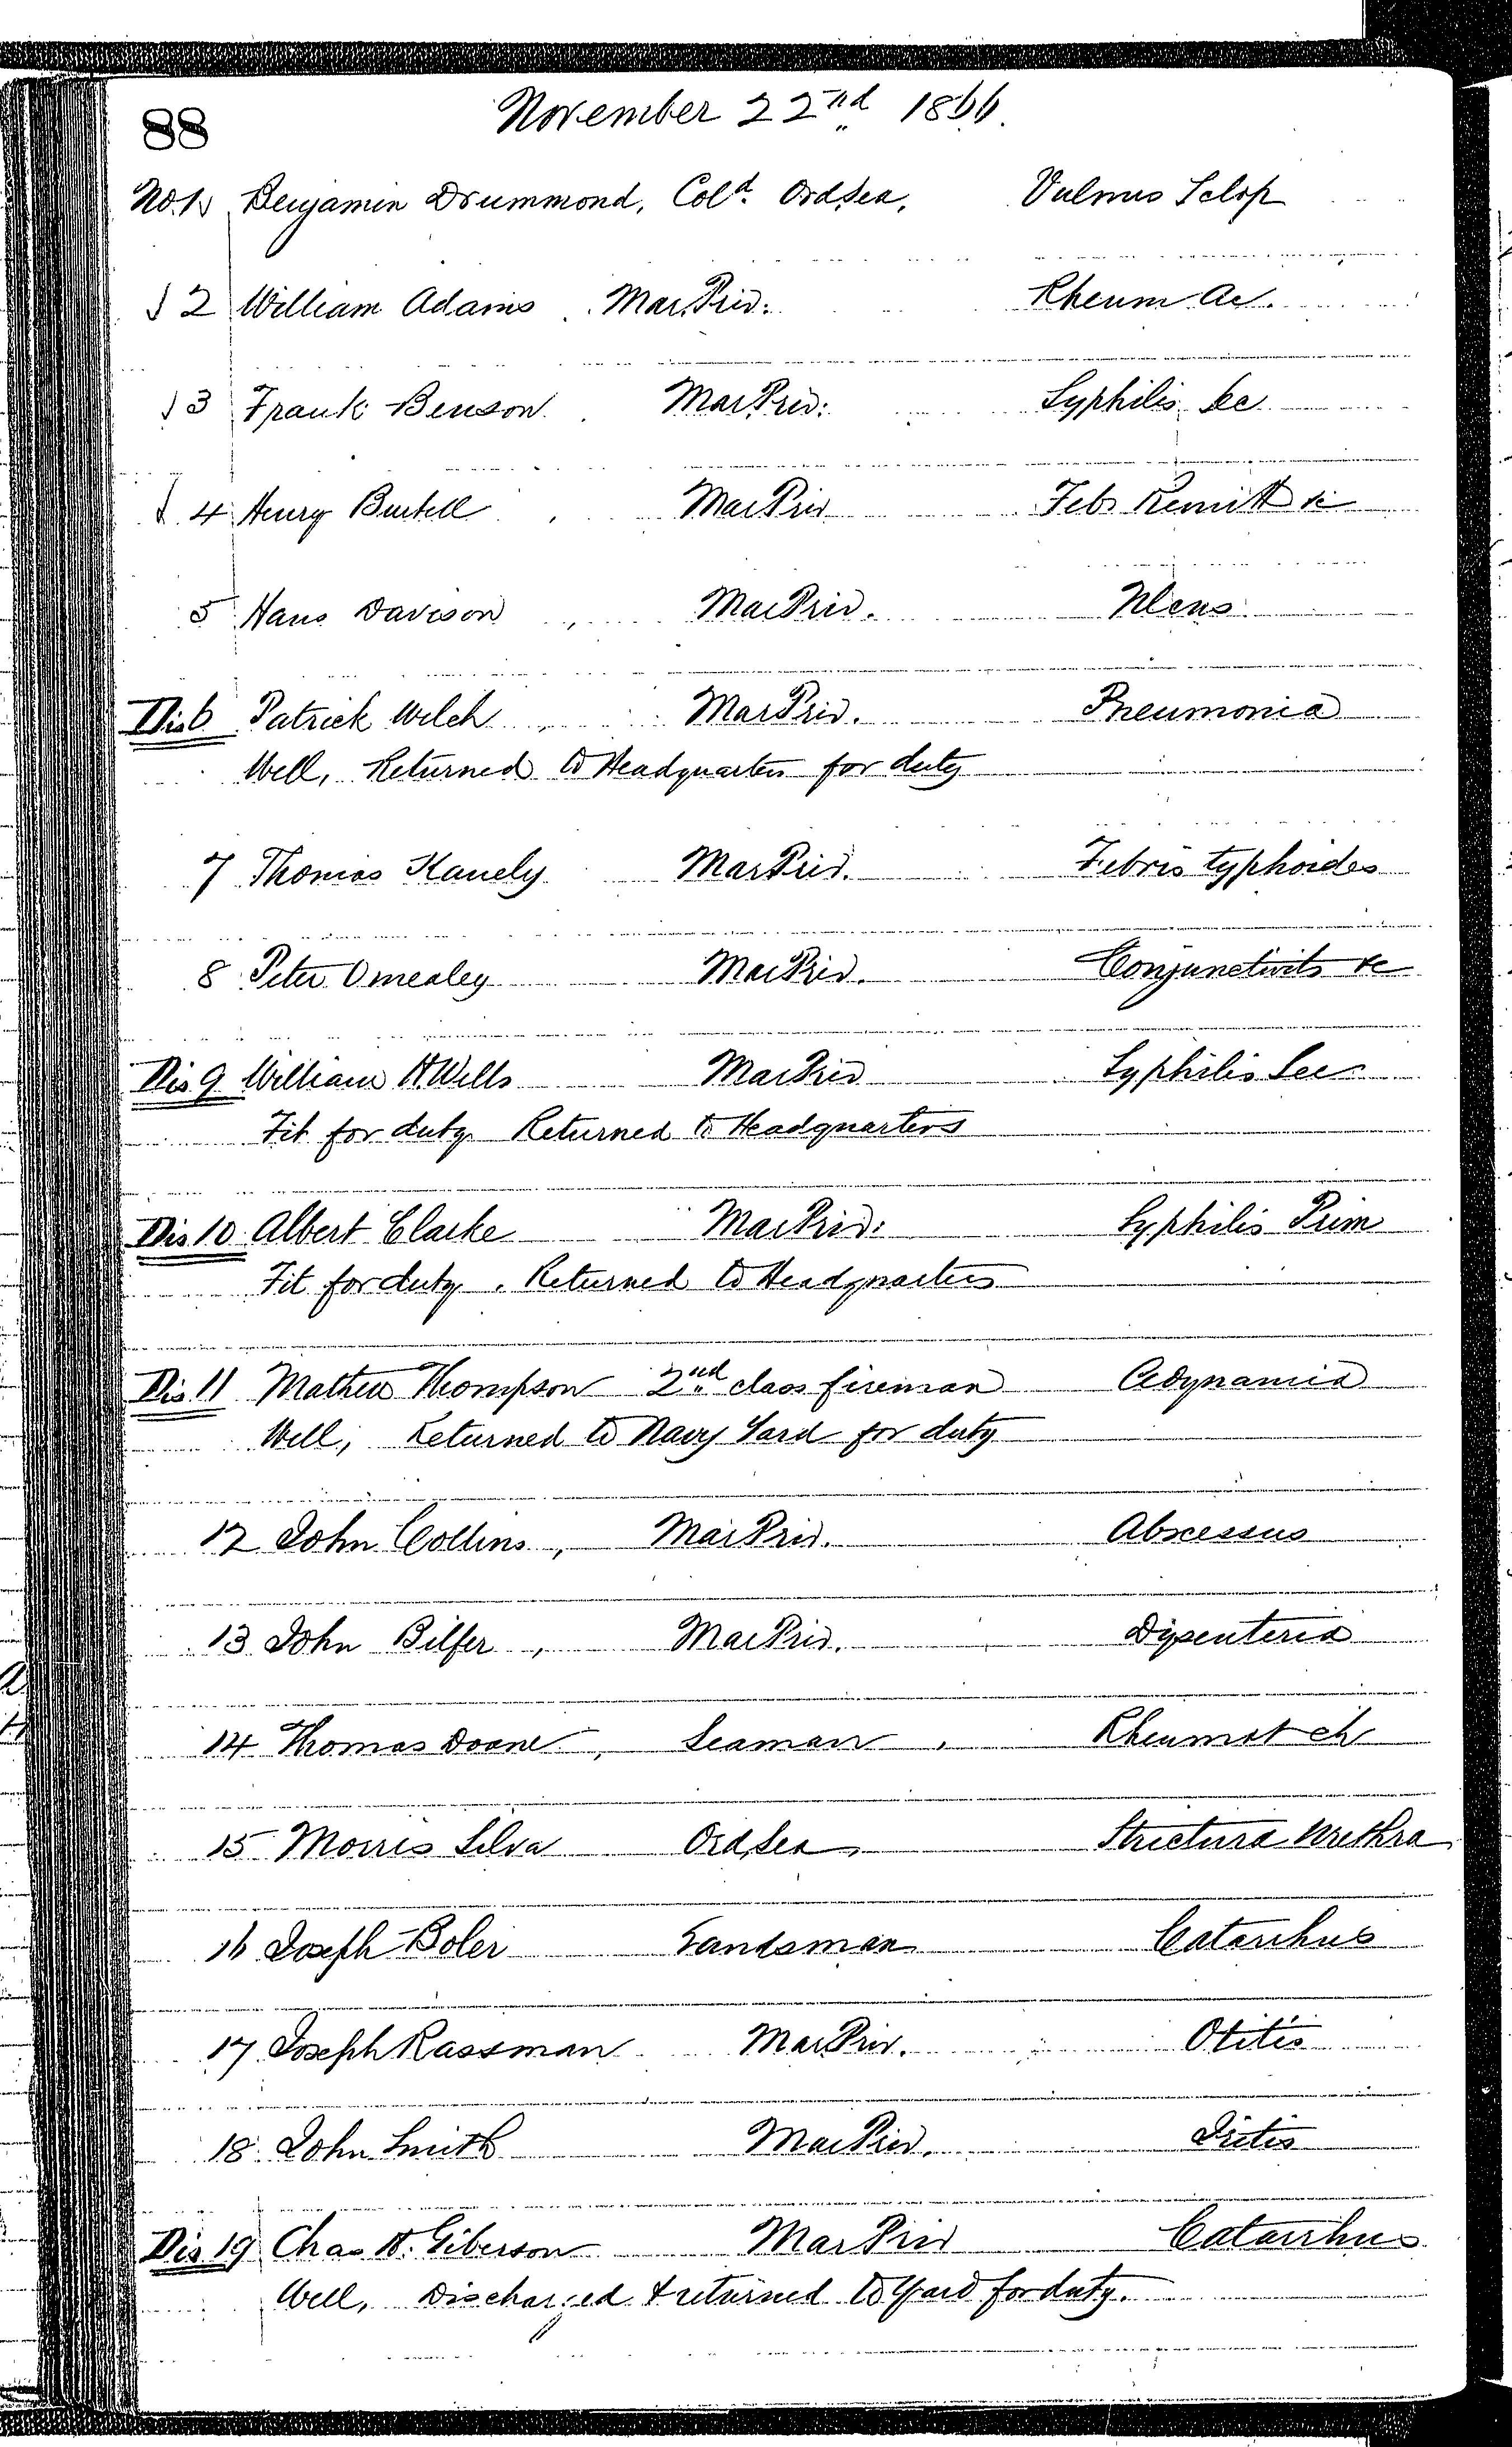 88
November 22nd 1866.
No. 1 Benjamin Drummond, Cold. Ord Sea, Vulnus Sclop
2 William Adams Mar. Priv: Rheum Ac.
3 Frank Benson Mar. Priv: Syphilis &c
4 Henry Burtell Mar Priv Feb Remitt &c
5 Hans Davison, Mar Priv. Ulcus
Dis 6 Patrick Welch, Mar Priv. Pneumonia
Well, Returned to Headquarters for duty
7 Thomas Kanely Mar Priv. Febris typhoides
8 Peter Omealey Mar Priv. Conjunctivits &c
Dis 9 William H Wells Mar Priv Syphilis Sec
Fit for duty Returned to Headquarters
Dis 10 Albert Clarke Mar Priv: Syphilis Prim
Fit for duty. Returned to Headquarters
Dis 11 Mathew Thompson 2nd class fireman Adynamia
Well, Returned to Navy Yard for duty
12 John Collins, Mar Priv. Abscessus
13 John Bilfer, Mar Priv. Dysenteria
14 Thomas Doane, Seaman, Rheumat ch
15 Morris Silva Ord Sea, Strictura Urethra
16 Joseph Boler Landsman Catarrhus
17 Joseph Rassman Mar Priv. Otitis
18 John Smith Mar Priv. Iritis
Dis 19 Chas H. Giberson Mar Priv Catarrhus
Well, Discharged & returned to Yard for duty.